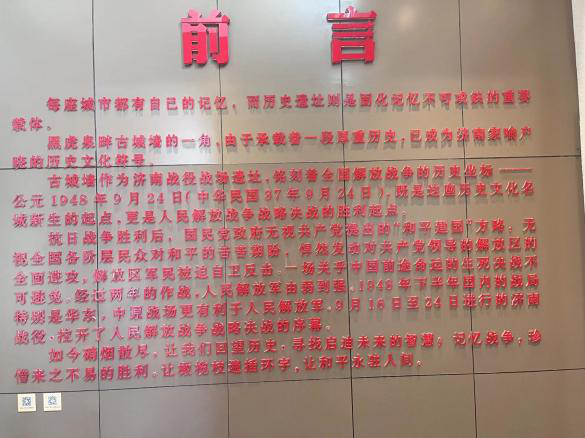 前言
每座城市都有自己的记忆，而历史遗址则是固化记忆不可或缺的重要
载体。
黑虎泉畔古城墙的一角，由于承载着一段厚重历史，已成为济南家喻户
晓的历史文化符号。
古城墙作为济南战役战场遗址，铭刻着全国解放战争的历史坐标——
公元1948年9月24日(中华民国37年9月24日)，既是这座历史文化名
城新生的起点，更是人民解放战争战略决战的胜利起点。
抗日战争胜利后，国民党政府无视共产党提出的“和平建国”方略，无
视全国各阶层民众对和平的苦苦期盼，悍然发动对共产党领导的解放区的
全面进攻，解放区军民被迫自卫反击。一场关于中国前途命运的生死决战不
可避免。经过两年的作战，人民解放军由弱到强，1948年下半年国内的战局
特别是华东，中原战场更有利于人民解放军，9月16日至24日进行的济南
战役，拉开了人民解放战争战略决战的序幕。
如今硝烟散尽，让我们回望历史，寻找启迪未来的智慧；记忆战争，珍
惜来之不易的胜利。让橄榄枝遮摭环宇，让和平永驻人间。